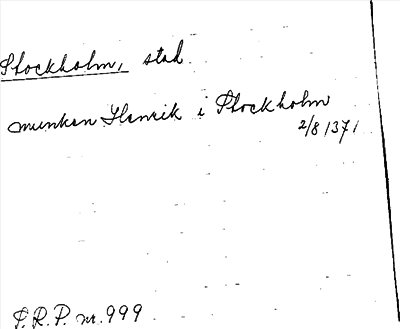 Stockholm, stad
munken Henrik i Stockholm
2/8 1371
S.R.P. nr. 999